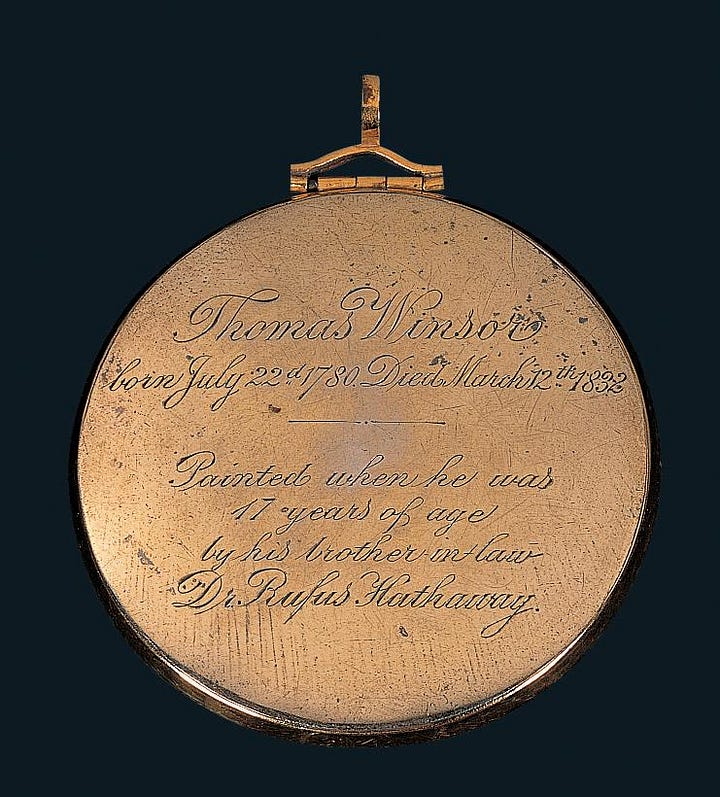 Thomas Winsor
born July 22d 1780. Died March 12th 1832
Painted when he was
17 years of age
by his brother-in-law
Dr. Rufus Hathaway.